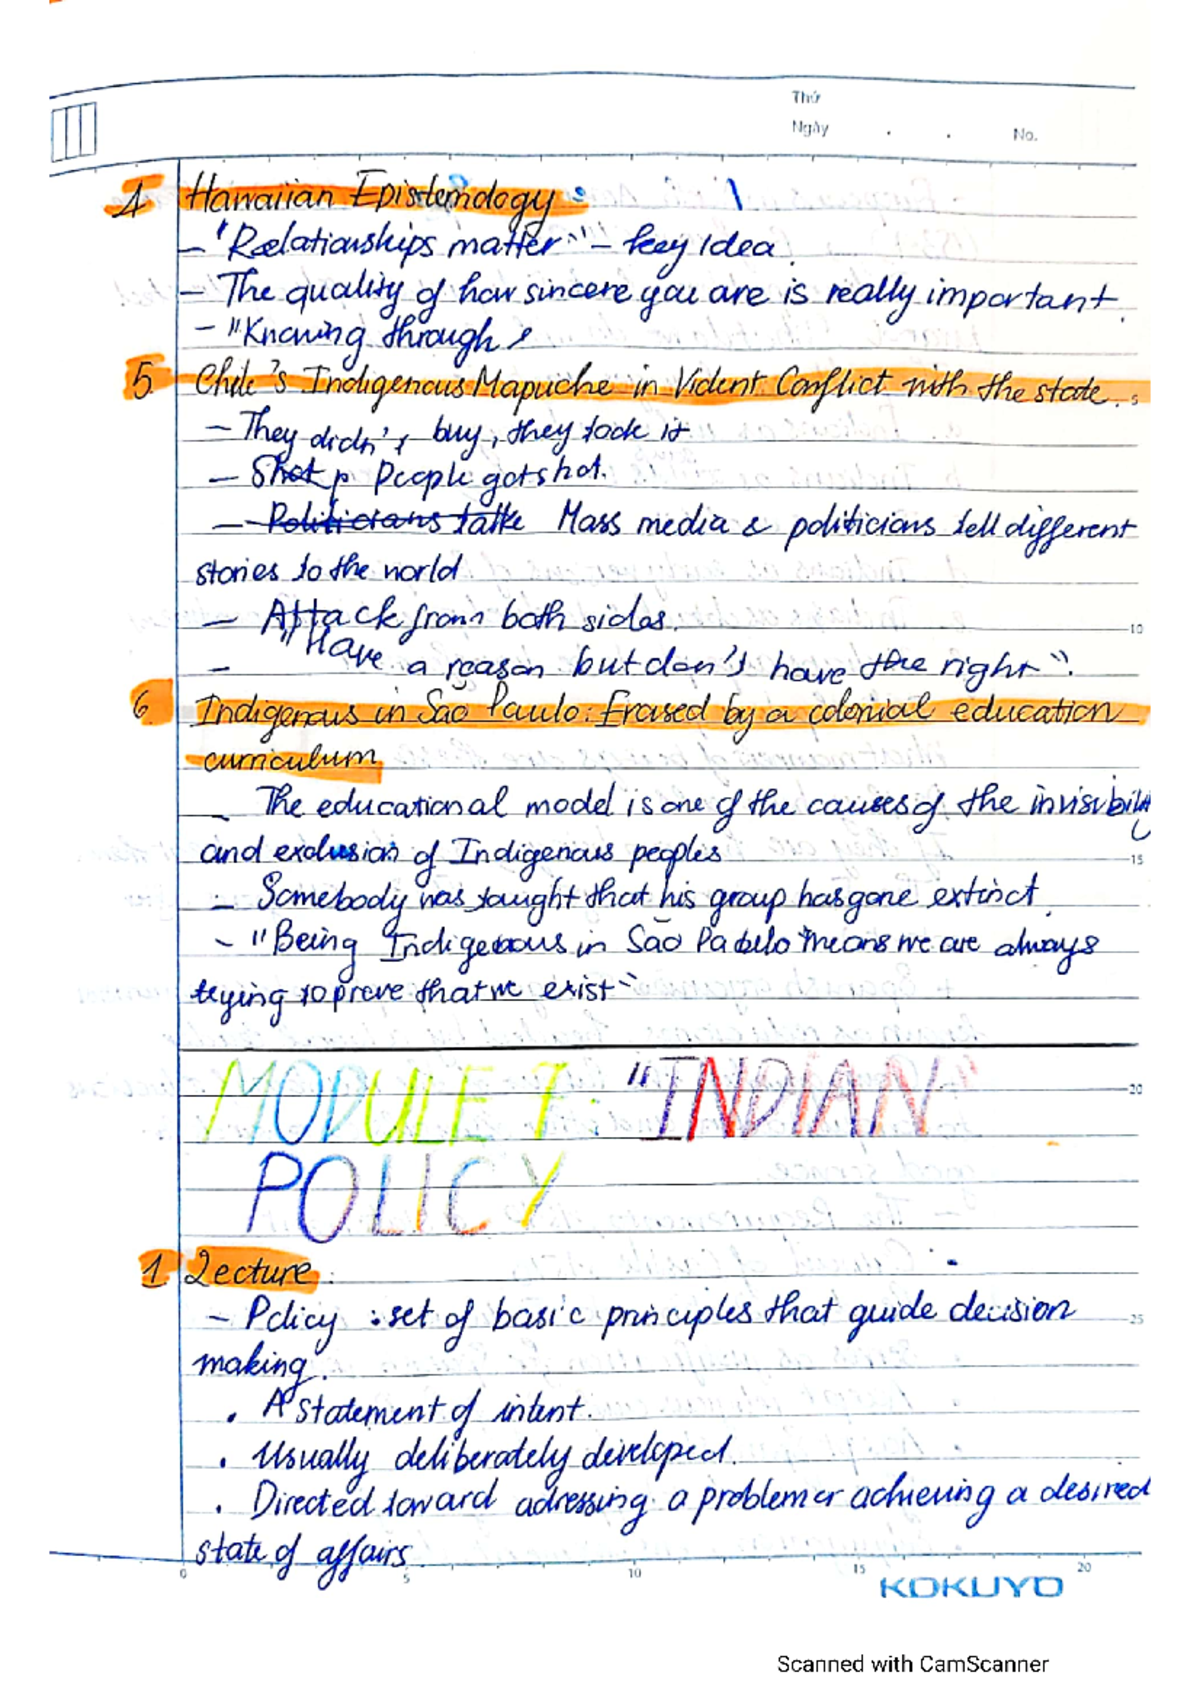 Thứ
Ngày . . No.
4 Hawaiian Epistemology :
- "Relationships matter" - key idea.
- The quality of how sincere you are is really important.
- "Knowing through
5. Chile's Indigenous Mapuche in Violent Conflict with the state.
5
- They didn't buy, they took it
- Shot p People got shot.
- Politicians talke Mass media & politicians tell different
stories to the world
- Attack from both sides.
10
- "Have a reason but don't have the right".
6. Indigenous in São Paulo: Erased by a colonial education
curriculum
- The educational model is one of the causes of the invisibility
and exclusion of Indigenous peoples
15
- Somebody was taught that his group has gone extinct.
- "Being Indigenous in São Paulo means we are always
trying to prove that we exist"
MODULE 7: "INDIAN"
20
POLICY
1 Lecture :
- Policy : set of basic principles that guide decision
25
making.
. A statement of intent.
. Usually deliberately developed.
. Directed toward adressing a problem or achieving a desired
state of affairs.
0 5 10 15 20
KOKUYO
Scanned with CamScanner